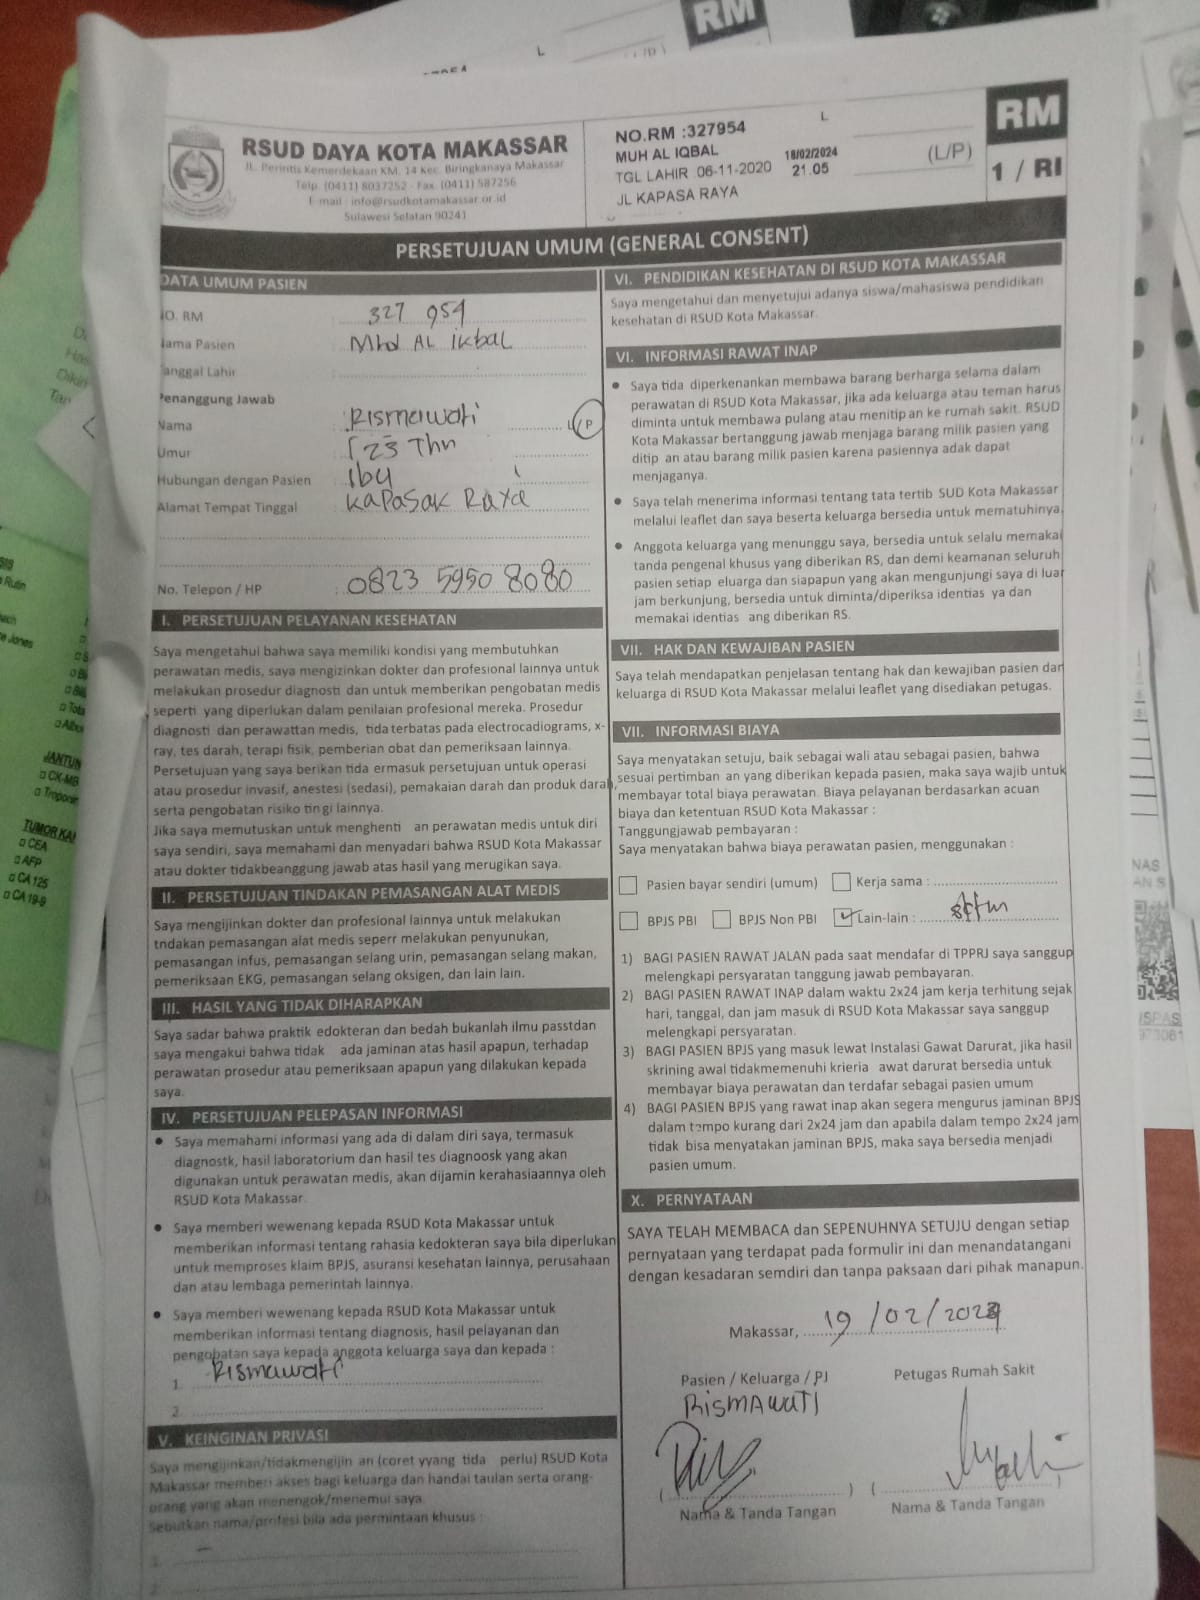 RM
RSUD DAYA KOTA MAKASSAR
JL. Perintis Kemerdekaan KM. 14 Kec. Biringkanaya Makassar
Telp. (0411) 8037252 - Fax. (0411) 587256
E-mail : info@rsudkotamakassar.or.id
Sulawesi Selatan 90241
NO.RM :327954
L
MUH AL IQBAL 18/02/2024
TGL LAHIR 06-11-2020 21.05
JL KAPASA RAYA
(L/P)
RM
1 / RI
PERSETUJUAN UMUM (GENERAL CONSENT)
DATA UMUM PASIEN
NO. RM 327 954
Nama Pasien Mhd AL ikbal
Tanggal Lahir
Penanggung Jawab
Nama : Rismawati L/P
Umur 23 Thn
Hubungan dengan Pasien Ibu
Alamat Tempat Tinggal : Kapasak Raya
No. Telepon / HP : 0823 5950 8080
I. PERSETUJUAN PELAYANAN KESEHATAN
Saya mengetahui bahwa saya memiliki kondisi yang membutuhkan
perawatan medis, saya mengizinkan dokter dan profesional lainnya untuk
melakukan prosedur diagnosti dan untuk memberikan pengobatan medis
seperti yang diperlukan dalam penilaian profesional mereka. Prosedur
diagnosti dan perawattan medis, tida terbatas pada electrocadiograms, x-
ray, tes darah, terapi fisik, pemberian obat dan pemeriksaan lainnya.
Persetujuan yang saya berikan tida ermasuk persetujuan untuk operasi
atau prosedur invasif, anestesi (sedasi), pemakaian darah dan produk darah,
serta pengobatan risiko tingi lainnya.
Jika saya memutuskan untuk menghenti an perawatan medis untuk diri
saya sendiri, saya memahami dan menyadari bahwa RSUD Kota Makassar
atau dokter tidakbeanggung jawab atas hasil yang merugikan saya.
II. PERSETUJUAN TINDAKAN PEMASANGAN ALAT MEDIS
Saya mengijinkan dokter dan profesional lainnya untuk melakukan
tndakan pemasangan alat medis seperr melakukan penyunukan,
pemasangan infus, pemasangan selang urin, pemasangan selang makan,
pemeriksaan EKG, pemasangan selang oksigen, dan lain lain.
III. HASIL YANG TIDAK DIHARAPKAN
Saya sadar bahwa praktik edokteran dan bedah bukanlah ilmu passtdan
saya mengakui bahwa tidak ada jaminan atas hasil apapun, terhadap
perawatan prosedur atau pemeriksaan apapun yang dilakukan kepada
saya.
IV. PERSETUJUAN PELEPASAN INFORMASI
• Saya memahami informasi yang ada di dalam diri saya, termasuk
diagnostk, hasil laboratorium dan hasil tes diagnoosk yang akan
digunakan untuk perawatan medis, akan dijamin kerahasiaannya oleh
RSUD Kota Makassar.
• Saya memberi wewenang kepada RSUD Kota Makassar untuk
memberikan informasi tentang rahasia kedokteran saya bila diperlukan
untuk memproses klaim BPJS, asuransi kesehatan lainnya, perusahaan
dan atau lembaga pemerintah lainnya.
• Saya memberi wewenang kepada RSUD Kota Makassar untuk
memberikan informasi tentang diagnosis, hasil pelayanan dan
pengobatan saya kepada anggota keluarga saya dan kepada :
1. Rismawati
2.
V. KEINGINAN PRIVASI
Saya mengijinkan/tidakmengijin an (coret yyang tida perlu) RSUD Kota
Makassar memberi akses bagi keluarga dan handai taulan serta orang-
orang yang akan menengok/menemui saya.
Sebutkan nama/profesi bila ada permintaan khusus :
1. -
2.
VI. PENDIDIKAN KESEHATAN DI RSUD KOTA MAKASSAR
Saya mengetahui dan menyetujui adanya siswa/mahasiswa pendidikan
kesehatan di RSUD Kota Makassar.
VI. INFORMASI RAWAT INAP
• Saya tida diperkenankan membawa barang berharga selama dalam
perawatan di RSUD Kota Makassar, jika ada keluarga atau teman harus
diminta untuk membawa pulang atau menitip an ke rumah sakit. RSUD
Kota Makassar bertanggung jawab menjaga barang milik pasien yang
ditip an atau barang milik pasien karena pasiennya adak dapat
menjaganya.
• Saya telah menerima informasi tentang tata tertib SUD Kota Makassar
melalui leaflet dan saya beserta keluarga bersedia untuk mematuhinya.
• Anggota keluarga yang menunggu saya, bersedia untuk selalu memakai
tanda pengenal khusus yang diberikan RS, dan demi keamanan seluruh
pasien setiap eluarga dan siapapun yang akan mengunjungi saya di luar
jam berkunjung, bersedia untuk diminta/diperiksa identias ya dan
memakai identias ang diberikan RS.
VII. HAK DAN KEWAJIBAN PASIEN
Saya telah mendapatkan penjelasan tentang hak dan kewajiban pasien dan
keluarga di RSUD Kota Makassar melalui leaflet yang disediakan petugas.
VII. INFORMASI BIAYA
Saya menyatakan setuju, baik sebagai wali atau sebagai pasien, bahwa
sesuai pertimban an yang diberikan kepada pasien, maka saya wajib untuk
membayar total biaya perawatan. Biaya pelayanan berdasarkan acuan
biaya dan ketentuan RSUD Kota Makassar :
Tanggungjawab pembayaran :
Saya menyatakan bahwa biaya perawatan pasien, menggunakan :
Pasien bayar sendiri (umum) Kerja sama :
BPJS PBI BPJS Non PBI Lain-lain :
1) BAGI PASIEN RAWAT JALAN pada saat mendafar di TPPRJ saya sanggup
melengkapi persyaratan tanggung jawab pembayaran.
2) BAGI PASIEN RAWAT INAP dalam waktu 2x24 jam kerja terhitung sejak
hari, tanggal, dan jam masuk di RSUD Kota Makassar saya sanggup
melengkapi persyaratan.
3) BAGI PASIEN BPJS yang masuk lewat Instalasi Gawat Darurat, jika hasil
skrining awal tidakmemenuhi krieria awat darurat bersedia untuk
membayar biaya perawatan dan terdafar sebagai pasien umum
4) BAGI PASIEN BPJS yang rawat inap akan segera mengurus jaminan BPJS
dalam tempo kurang dari 2x24 jam dan apabila dalam tempo 2x24 jam
tidak bisa menyatakan jaminan BPJS, maka saya bersedia menjadi
pasien umum.
X. PERNYATAAN
SAYA TELAH MEMBACA dan SEPENUHNYA SETUJU dengan setiap
pernyataan yang terdapat pada formulir ini dan menandatangani
dengan kesadaran semdiri dan tanpa paksaan dari pihak manapun.
Makassar, 19/02/2024
Pasien / Keluarga / PJ Petugas Rumah Sakit
RISMAWATI
Nama & Tanda Tangan Nama & Tanda Tangan
JANTUN
CK-MB
Troponin
TUMOR
CEA
AFP
CA 125
CA 19-9